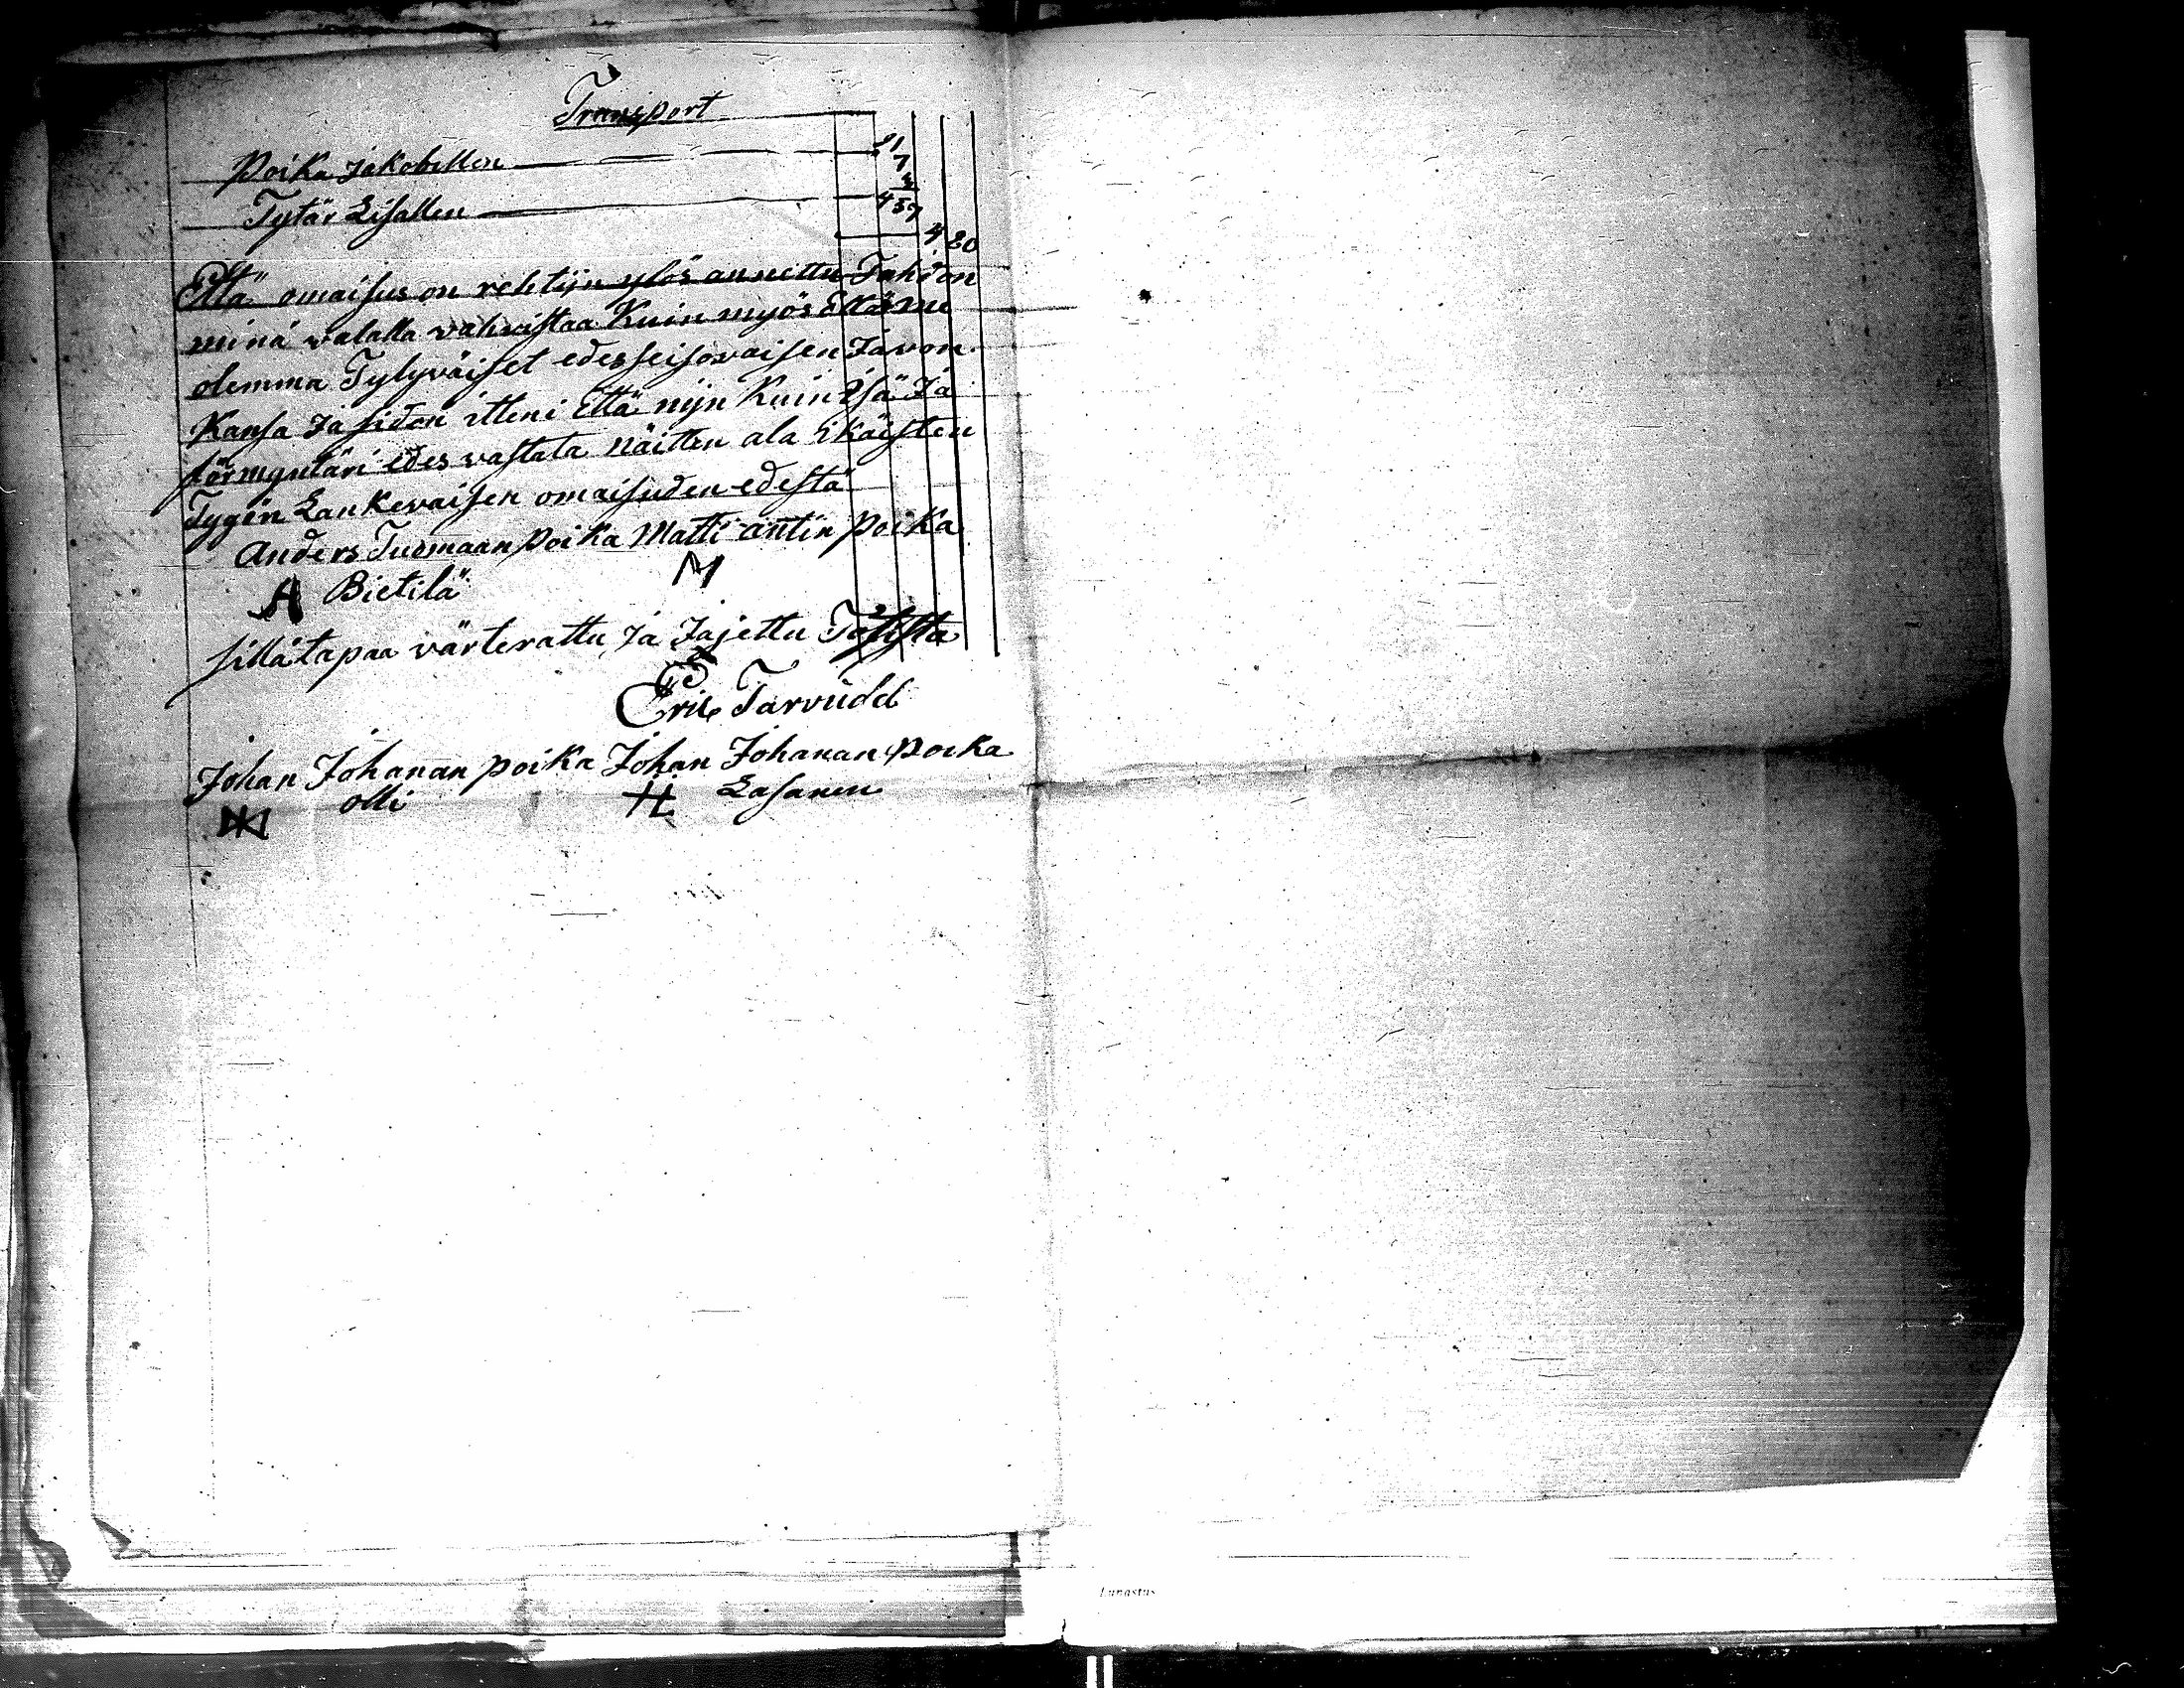 Transport
Poika Jakobillen
Tytär Lisallen 4 57
4 20
Että omaisus on rehtijn ylös annettu Tahdon
minä valalla vahvistaa Kuin myös Että me
olemma Tytyväiset edesseisovaisen Javon
Kansa Ja sidon itteni Että nijn Kuin Isä Ja
förmyntäri edes vastata näitten ala Ikäisten
Tygön Lankevaisen omaisuden edestä
Anders Tuomaan poika Matti antin poika
A Bietilä M
sillä tapaa värterattu Ja Jajettu Totista
Eric Tarvudd
Johan Johanan poika Johan Johanan poika
olli Lasanen
Lunastus